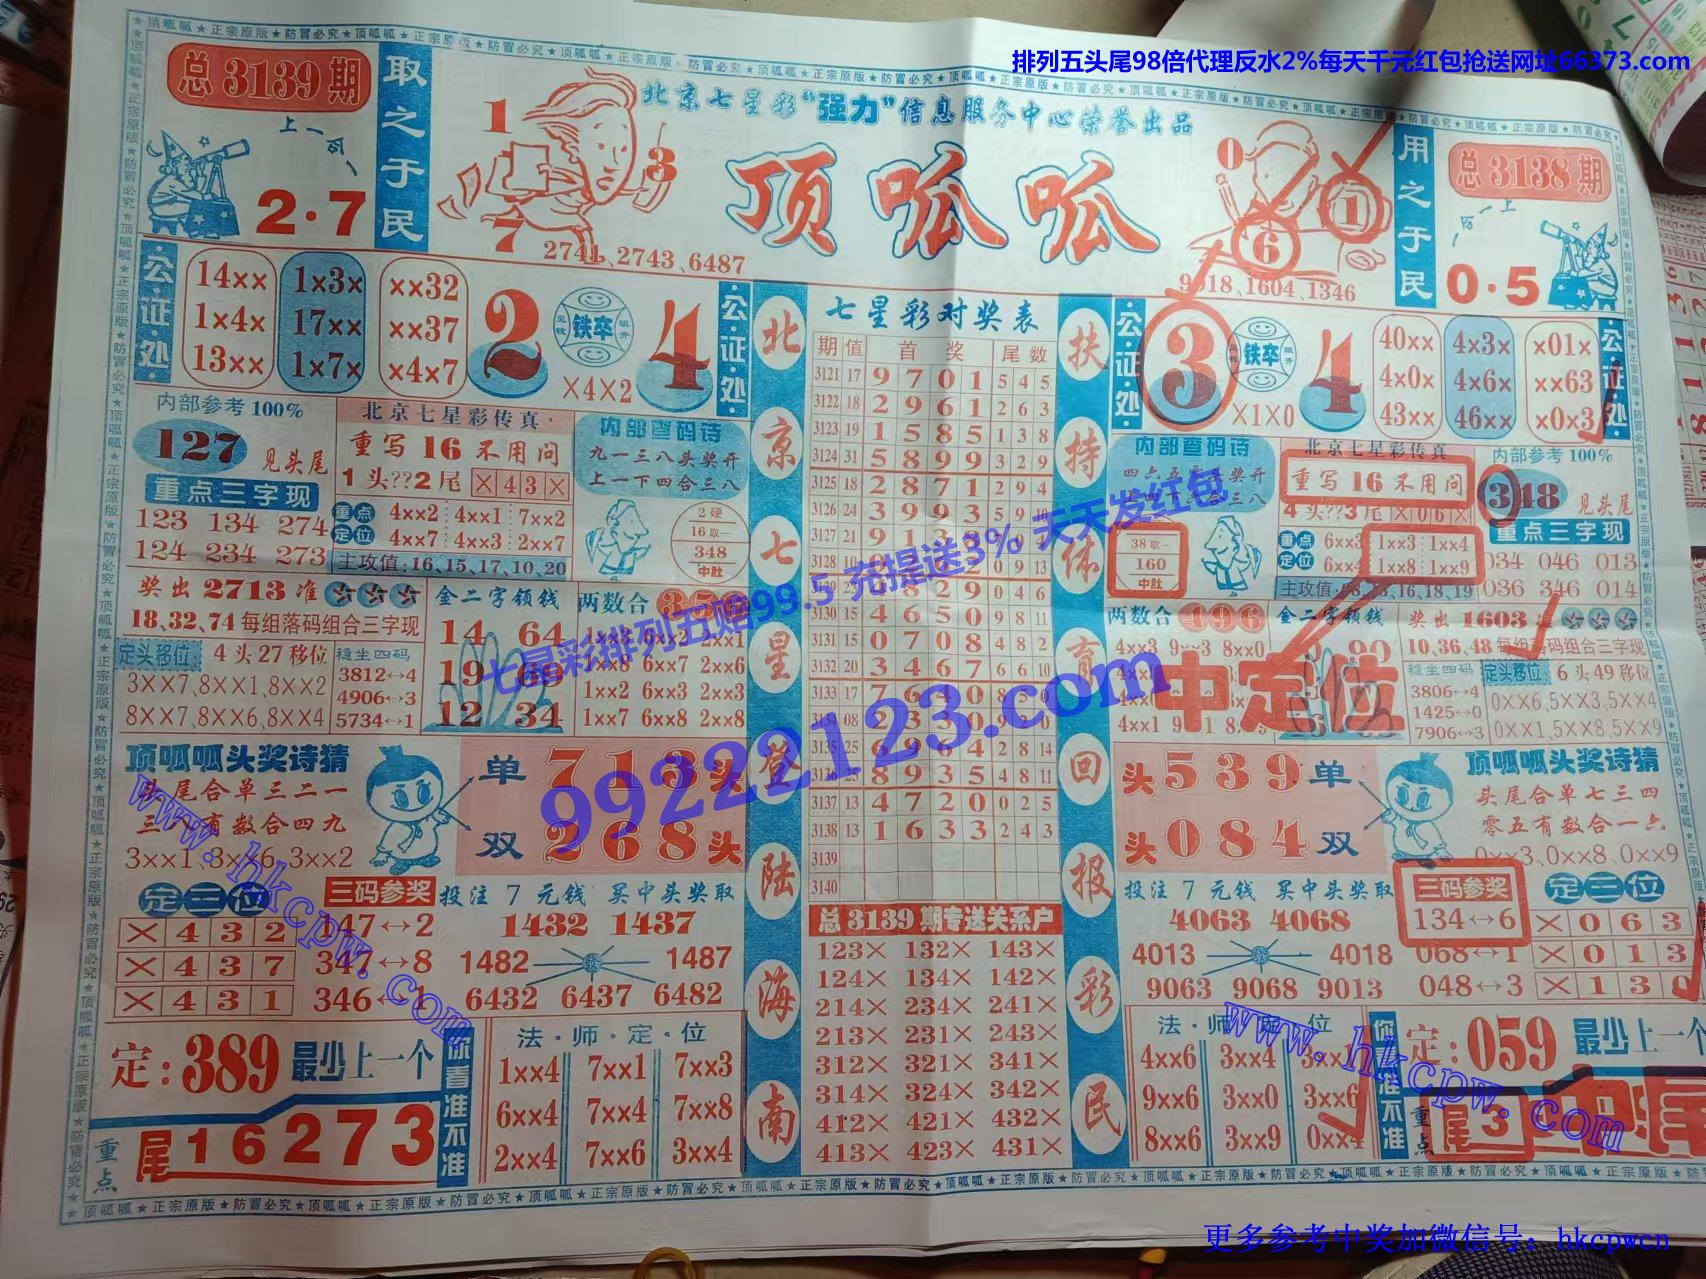 排列五头尾98倍代理反水2%每天千元红包抢送网址66373.com
总3139期
取之于民
上一名
2·7
1
3
7
2741、2743、6487
北京七星彩“强力”信息服务中心荣誉出品
顶呱呱
0
1
6
9018、1604、1346
用之于民
总3138期
0·5
公·证·处
14×× 1×3× ××32
1×4× 17×× ××37
13×× 1×7× ×4×7
2 铁卒 4
×4×2
公·证·处
内部参考100%
127 见头尾
重点三字现
123 134 274
124 234 273
北京七星彩传真
重写16不用问
1头??2尾 ×43×
重点定位
4××2 4××1 7××2
4××7 4××3 2××7
主攻值:16、15、17、10、20
内部查码诗
九一三八头奖开
上一下四合三八
2硬
16取一
348
中肚
奖出2713准
18、32、74每组落码组合三字现
定头移位: 4头27移位
3××7、8××1、8××2
8××7、8××6、8××4
稳坐四码
3812↔4
4906↔3
5734↔1
金二字领钱
14 64
19 69
12 34
两数合
1××8 6××7 2××6
1××2 6××3 2××3
1××7 6××8 2××8
顶呱呱头奖诗猜
头尾合单三二一
三八有数合四九
3××1、3××6、3××2
单 713头
双 268头
定三位
×432
×437
×431
三码参奖
147↔2
347↔8
346↔1
投注7元钱 买中头奖取
1432 1437
1482 1487
6432 6437 6482
定:389最少上一个
重点
尾16273
你看准不准
法·师·定·位
1××4 7××1 7××3
6××4 7××4 7××8
2××4 7××6 3××4
北京七星登陆海南
七星彩对奖表
期 值 首奖 尾数
3121 17 9 7 0 1 5 4 5
3122 18 2 9 6 1 2 6 3
3123 19 1 5 8 5 1 3 8
3124 31 5 8 9 9 3 2 9
3125 18 2 8 7 1 2 9 4
3126 24 3 9 9 3 5 9 10
3127 21 9 1
3128 10 0 9 13
8 2 9 0 4 6
3130 15 4 6 5 0 9 8 11
3131 15 0 7 0 8 4 8 2
3132 20 3 4 6 7 6 6 10
3133 17 7 6 4 0 8
3134 08 2 3 3 0
3135 25 6 9 6 4 2 8 14
3136 25 8 9 3 5 4 8 11
3137 13 4 7 2 0 0 2 5
3138 13 1 6 3 3 2 4 3
3139
3140
总3139期专送关系户
123× 132× 143×
124× 134× 142×
214× 234× 241×
213× 231× 243×
312× 321× 341×
314× 324× 342×
412× 421× 432×
413× 423× 431×
扶持体育回报彩民
公·证·处
3 铁卒 4
×1×0
40×× 4×3× ×01×
4×0× 4×6× ××63
43×× 46×× ×0×3
公·证·处
内部查码诗
38取一
160
中肚
北京七星彩传真
重写16不用问
4头??3尾 ×06×
重点定位
6××3 1××3 1××4
6××4 1××8 1××9
内部参考100%
348 见头尾
重点三字现
034 046 013
036 346 014
两数合 196
金二字领钱
奖出1603
10、36、48每组落码组合三字现
稳坐四码
3806↔4
1425↔0
7906↔3
定头移位: 6头49移位
0××6、5××3、5××4
0××1、5××8、5××9
中定位
头539单
头084双
顶呱呱头奖诗猜
头尾合单七三四
零五有数合一六
0××3、0××8、0××9
投注7元钱 买中头奖取
4063 4068
4013 4018
9063 9068 9013
三码参奖
134↔6
068↔1
048↔3
定三位
×063
×013
×130
法·师·定·位
4××6 3××4
9××6 3××0 3××6
8××6 3××9 0××4
你看准不准
定:059最少上一个
重点
尾3
中尾
七星彩排列五赔99.5 充提送3% 天天发红包
99222123.com
www.hkcpw.com
www.hkcpw.com
更多参考中奖加微信号：hkcpwcn